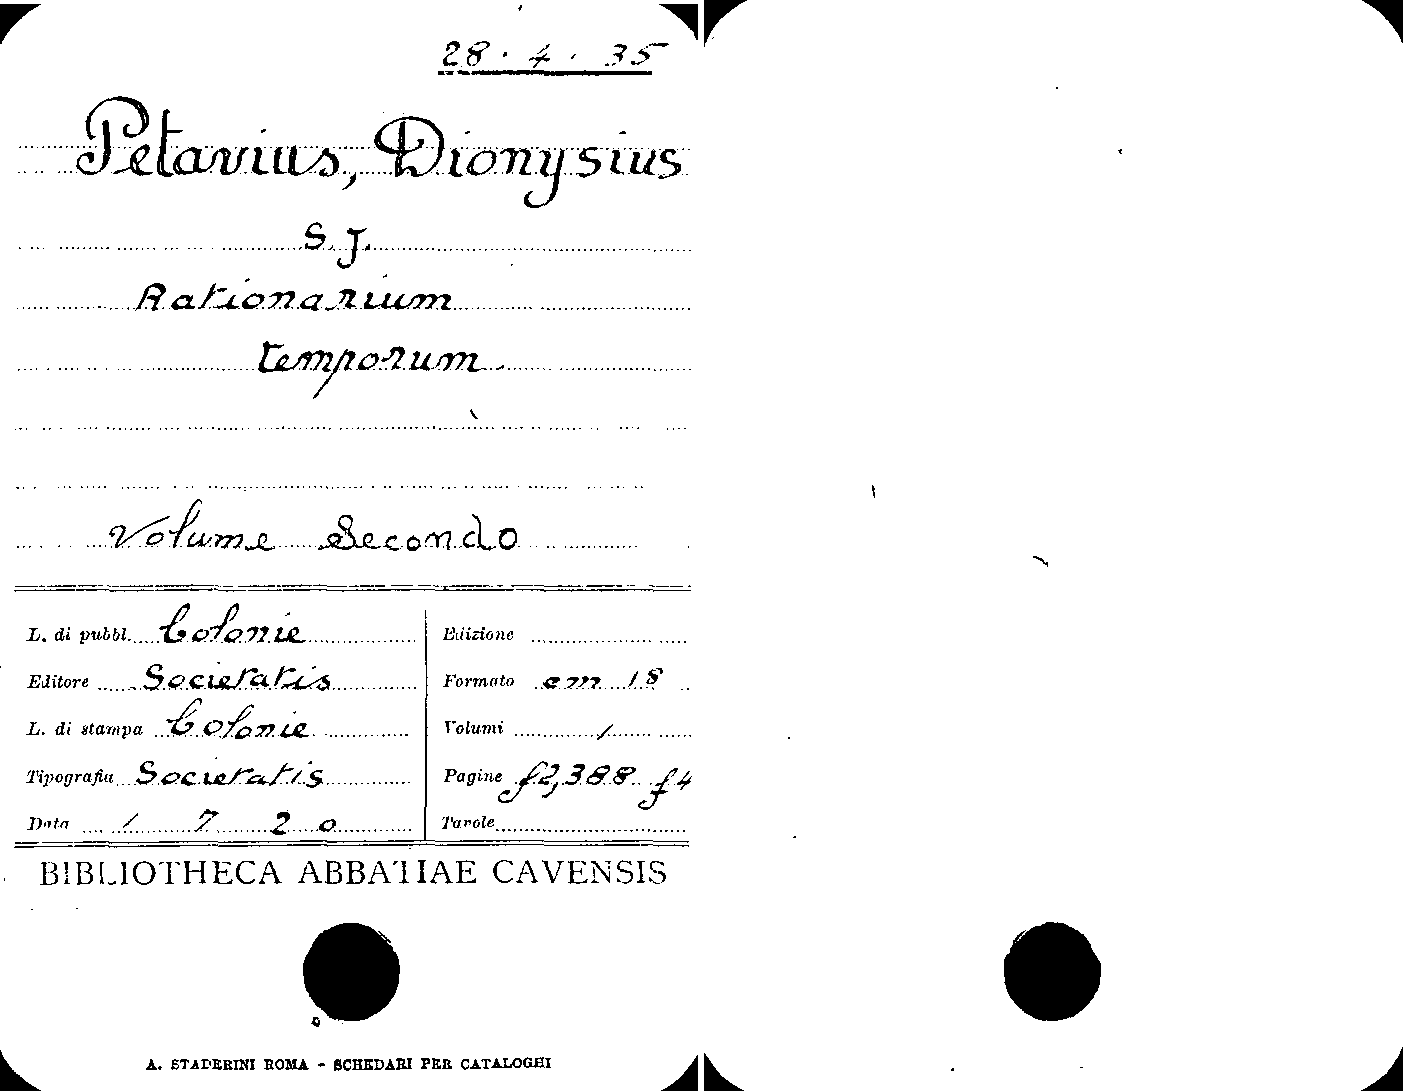 28 · 4 · 35
Petavius, Dionysius
S. J.
Rationarium
temporum
Volume Secondo
L. di pubbl. Colonie
Editore Societatis
L. di stampa Colonie
Tipografia Societatis
Data 1 7 20
Edizione
Formato em 18
Volumi 1
Pagine f2,388 f4
Tavole
BIBLIOTHECA ABBATIAE CAVENSIS
A. STADERINI ROMA - SCHEDARI PER CATALOGHI